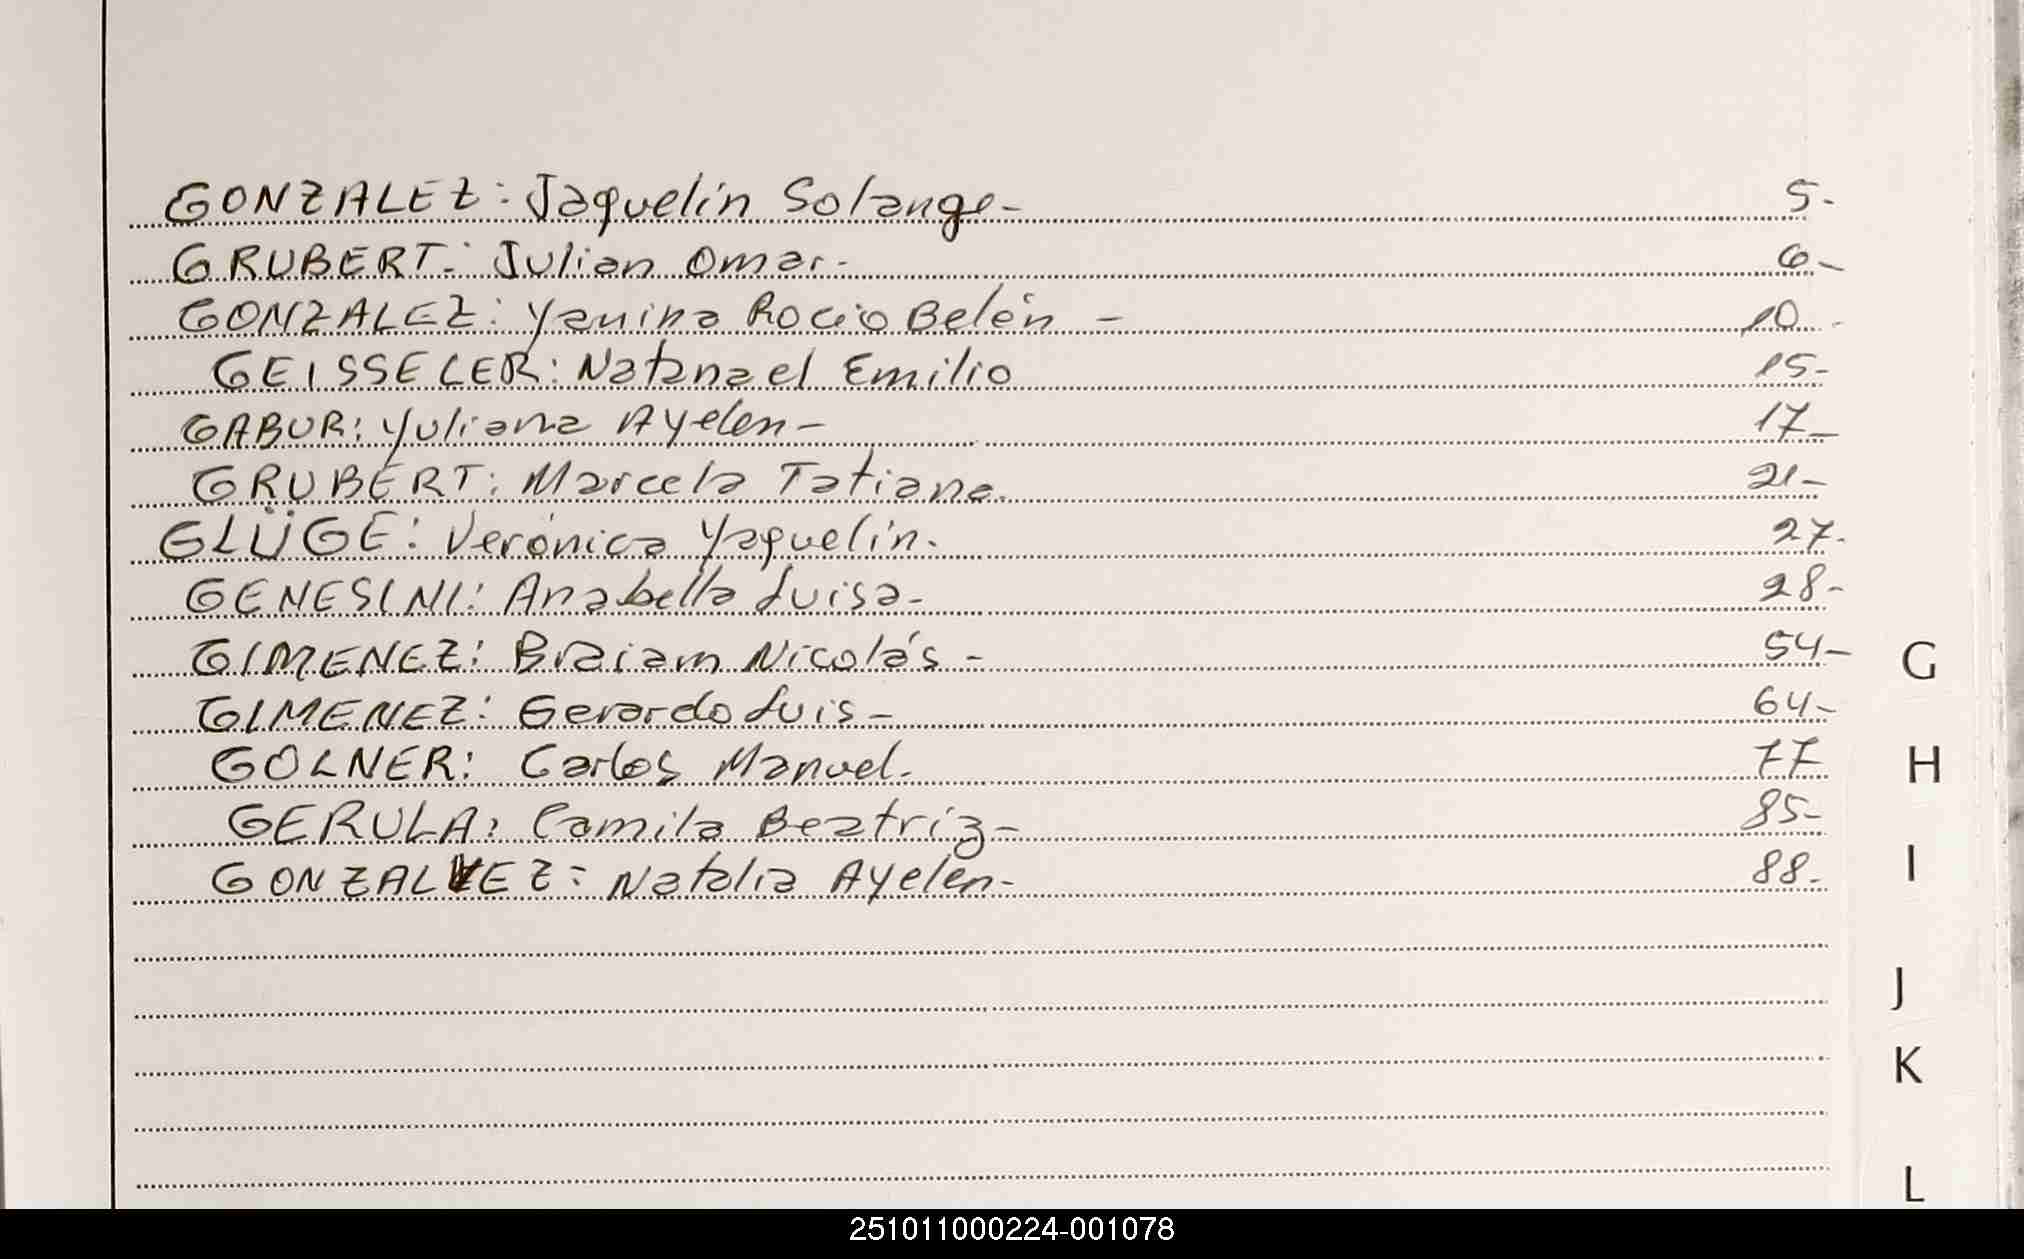 GONZALEZ: Jaquelin Solange- 5-
GRUBERT: Julian Omar- 6-
GONZALEZ: Yanina Rocio Belén - 10-
GEISSELER: Natanael Emilio 15-
GABUR: Yuliana Ayelen- 17-
GRUBERT: Marcela Tatiana. 21-
GLÜGE: Verónica Yaquelin. 27-
GENESINI: Anabella Luisa- 28-
GIMENEZ: Braiam Nicolás - 54-
GIMENEZ: Gerardo Luis- 64-
GOLNER: Carlos Manuel- 77
GERULA: Camila Beatriz- 85-
GONZALVEZ: Natalia Ayelén- 88-
G
H
I
J
K
L
251011000224-001078